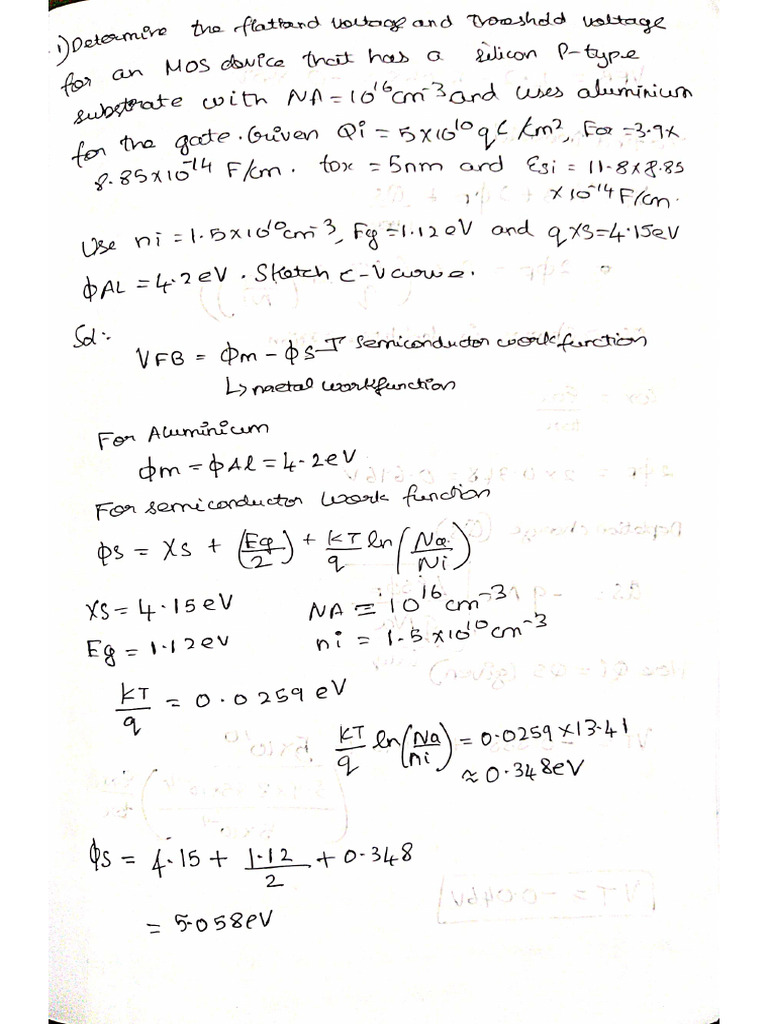 1) Determine the flatband voltage and Threshold voltage
for an MOS device that has a silicon P-type
substrate with NA = 10^16 cm^-3 and uses aluminium
for the gate. Given Qi = 5×10^10 qC/cm², Fox = 3.9×
8.85×10^-14 F/cm. tox = 5nm and Esi = 11.8×8.85
×10^-14 F/cm.
Use ni = 1.5×10^10 cm^-3, Eg = 1.12eV and qXS = 4.15eV
ϕAL = 4.2eV. Sketch C-V curve.
Sol:-
VFB = ϕm - ϕS → semiconductor workfunction
↳ metal workfunction
For Aluminium
ϕm = ϕAl = 4.2eV
For semiconductor work function
ϕs = XS + (Eg/2) + KT/q ln (Na/Ni)
XS = 4.15eV NA = 10^16 cm^-3
Eg = 1.12eV ni = 1.5×10^10 cm^-3
KT/q = 0.0259 eV
KT/q ln (Na/ni) = 0.0259×13.41
≈ 0.348eV
ϕS = 4.15 + 1.12/2 + 0.348
= 5.058eV